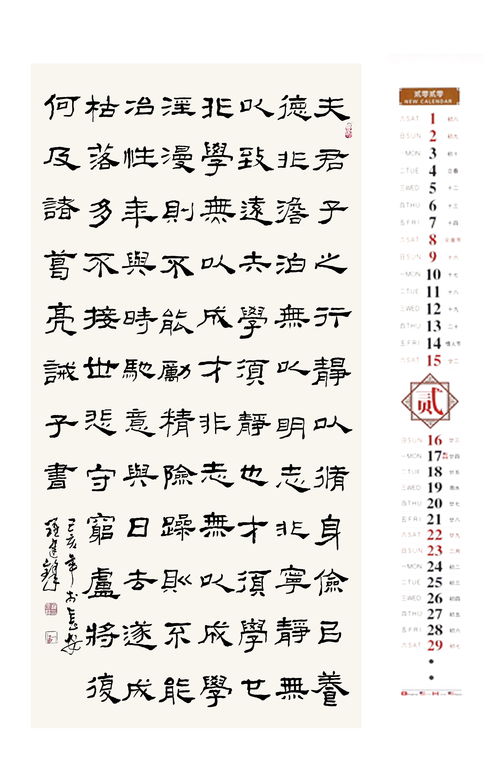 夫君子之行靜以脩身儉已養
德非澹泊無以明志非寧靜無
以致遠夫學須靜也才須學也
非學無以成才非志無以成學
淫漫則不能勵精險躁則不能
冶性年與時馳意與日去遂成
枯落多不接世悲守窮廬將復
何及諸葛亮誡子書
己亥年於長安
贰零贰零
NEW CALENDAR
六 SAT 1 初八
日 SUN 2 初九
一 MON 3 初十
二 TUE 4 立春
三 WED 5 十二
四 THU 6 十三
五 FRI 7 十四
六 SAT 8 元宵节
日 SUN 9 十六
一 MON 10 十七
二 TUE 11 十八
三 WED 12 十九
四 THU 13 二十
五 FRI 14 情人节
六 SAT 15 廿二
贰
日 SUN 16 廿三
一 MON 17 廿四
二 TUE 18 廿五
三 WED 19 雨水
四 THU 20 廿七
五 FRI 21 廿八
六 SAT 22 廿九
日 SUN 23 二月
一 MON 24 初二
二 TUE 25 初三
三 WED 26 初四
四 THU 27 初五
五 FRI 28 初六
六 SAT 29 初七